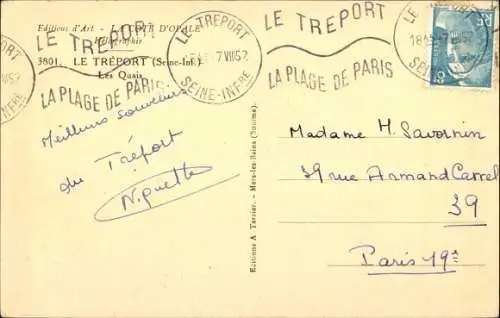 Editions d'Art - LA CÔTE D'OPALE
3801. LE TRÉPORT (Seine-Inf.)
Les Quais
LE TRÉPORT
LA PLAGE DE PARIS
LE TRÉPORT
7 VIII 52
SEINE-INFRE
LE TREPORT
LA PLAGE DE PARIS
LE TREPORT
SEINE
Meilleurs souvenirs
du Tréport
Editions A Tarrier. - Mers-les-Bains (Somme).
Madame M. Savornin
39 rue Armand Carrel
39
Paris 19e